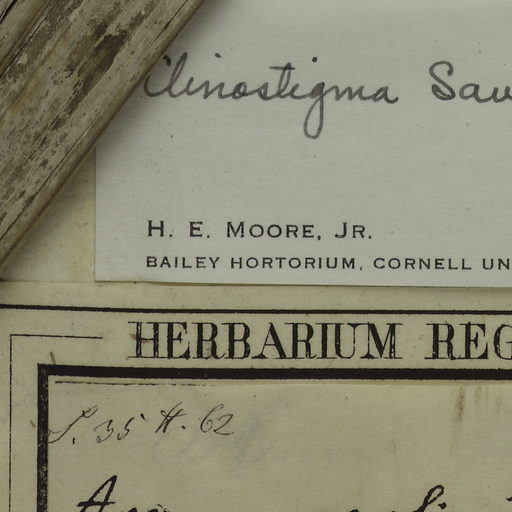 Clinostigma Sav
H. E. MOORE, JR.
BAILEY HORTORIUM, CORNELL UN
HERBARIUM REG
S. 35 H. 62